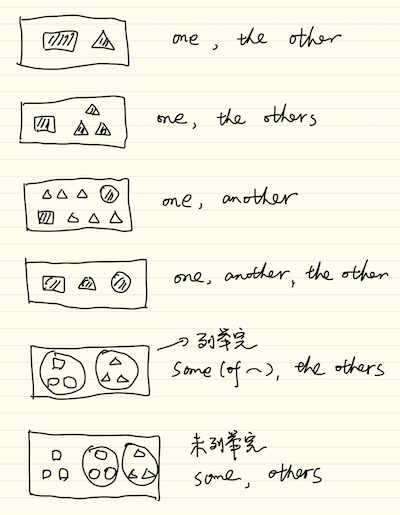 one, the other
one, the others
one, another
one, another, the other
→列举完
some (of ~), the others
未列举完
some, others